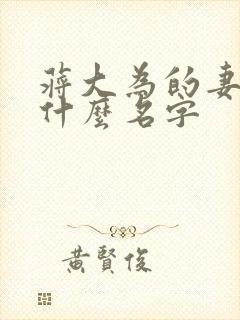 蔣大為的妻
什麼名字
黃賢俊